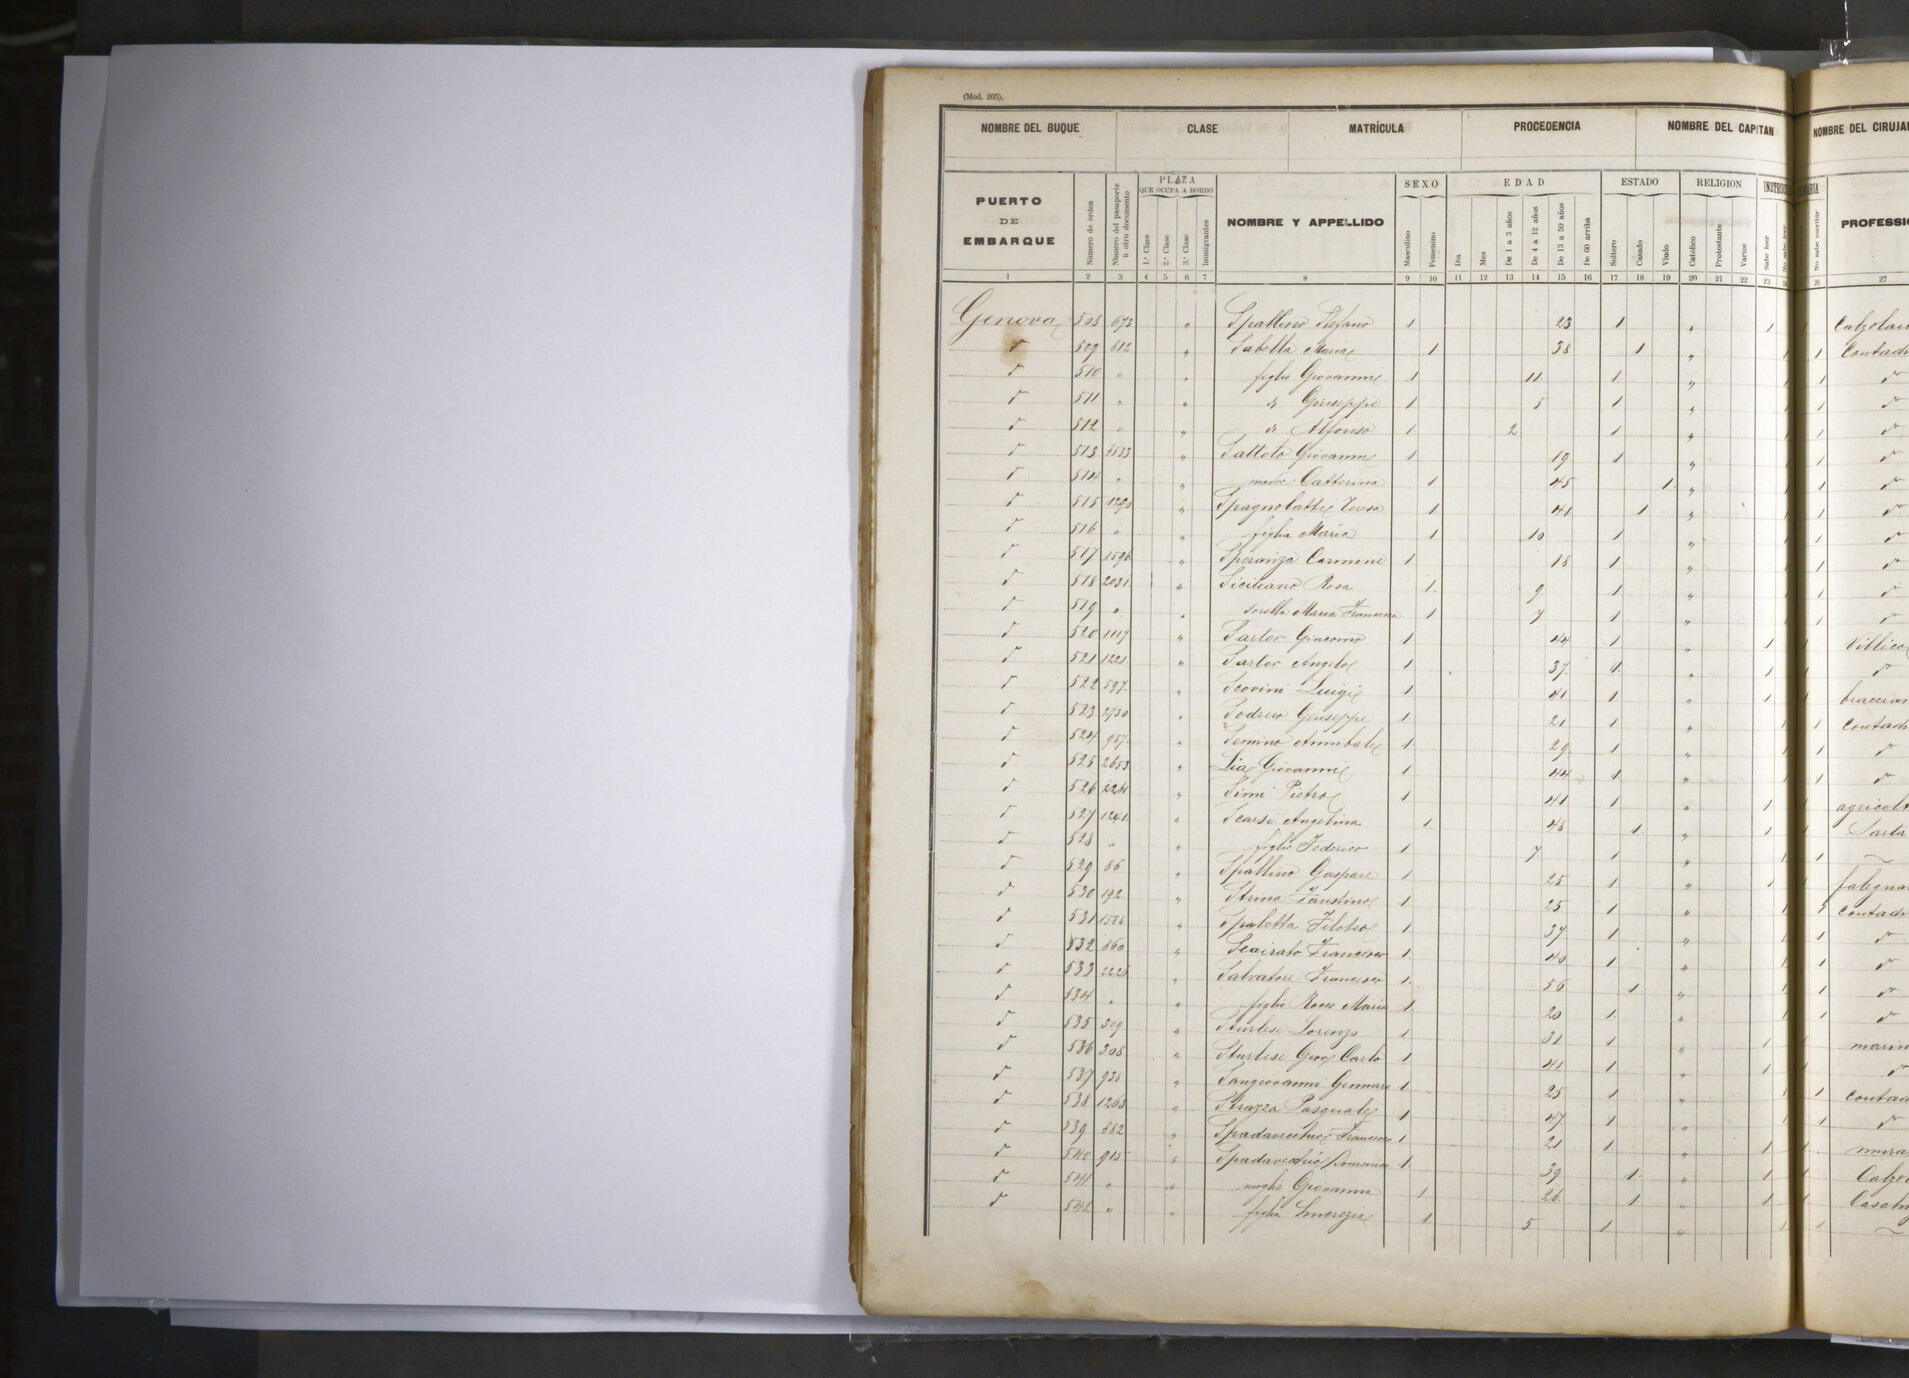 (Mod. 205).
NOMBRE DEL BUQUE CLASE MATRÍCULA PROCEDENCIA NOMBRE DEL CAPITAN NOMBRE DEL CIRUJA
PUERTO DE EMBARQUE Número de órden Número del pasaporte ú otro documento PLAZA QUE OCUPA A BORDO 1.ª Clase 2.ª Clase 3.ª Clase Inmigrantes NOMBRE Y APPELLIDO SEXO Masculino Femenino EDAD Dia Mes De 1 a 3 años De 4 a 12 años De 13 a 59 años De 60 arriba ESTADO Soltero Casado Viudo RELIGION Católico Protestante Varios Sabe leer No sabe escribir PROFESSI
1 2 3 4 5 6 7 8 9 10 11 12 13 14 15 16 17 18 19 20 21 22 23 26 27
Genova 508 673 " Spallino Stefano 1 23 1 " 1 1 Calzolai
d 509 612 " Sabella Maria 1 38 1 " 1 1 Contad
d 510 " " figlio Giovanni 1 11 1 " 1 1 d
d 511 " " d Giuseppe 1 5 1 " 1 1 d
d 512 " " d Alfonso 1 2 1 " 1 1 d
d 513 8533 " Sattolo Giovanni 1 19 1 " 1 1 d
d 514 " " madre Catterina 1 45 1 " 1 1 d
d 515 1290 " Spagnolatti Teresa 1 41 1 " 1 1 d
d 516 " " figlia Maria 1 10 1 " 1 1 d
d 517 1596 " Speranza Carmine 1 18 1 " 1 1 d
d 518 2031 " Siciliano Rosa 1 9 1 " 1 1 d
d 519 " " sorella Maria Francesca 1 7 1 " 1 1 d
d 520 1117 " Sartor Giacomo 1 44 1 " 1 1 Villico
d 521 1221 " Sartor Angelo 1 37 1 " 1 1 d
d 522 597 " Scovini Luigi 1 41 1 " 1 1 braccian
d 523 2730 " Sodrero Giuseppe 1 21 1 " 1 1 Contad
d 524 957 " Semino Annibale 1 29 1 " 1 1 d
d 525 2653 " Sia Giovanni 1 44 1 " 1 1 d
d 526 2261 " Simi Pietro 1 41 1 " 1 1 agricolt
d 527 1241 " Scarsi Angelina 1 48 1 " 1 1 Sarta
d 528 " " figlio Federico 1 7 1 " 1 1
d 529 86 " Spallino Gaspare 1 25 1 " 1 falegna
d 530 192 " Strina Faustino 1 25 1 " 1 1 contad
d 531 1588 " Spaletta Filoteo 1 37 1 " 1 1 d
d 532 860 " Scairato Francesco 1 40 1 " 1 1 d
d 533 2226 " Salvatore Francesco 1 56 1 " 1 1 d
d 534 " " figlio Rocco Maria 1 20 1 " 1 1 d
d 535 309 " Sturlese Lorenzo 1 31 1 " 1 marin
d 536 308 " Sturlese Gio Carlo 1 41 1 " 1 d
d 537 936 " Sangiovanni Gennaro 1 25 1 " 1 1 contad
d 538 1263 " Strazza Pasquale 1 47 1 " 1 1 d
d 539 882 " Spadavecchia Francesco 1 21 1 " 1 1 mura
d 540 915 " Spadavecchia Domenico 1 39 1 " 1 1 Calzo
d 541 " " moglie Giovanna 1 26 1 " 1 1 Casal
d 542 " " figlia Lucrezia 1 5 1 " 1 1